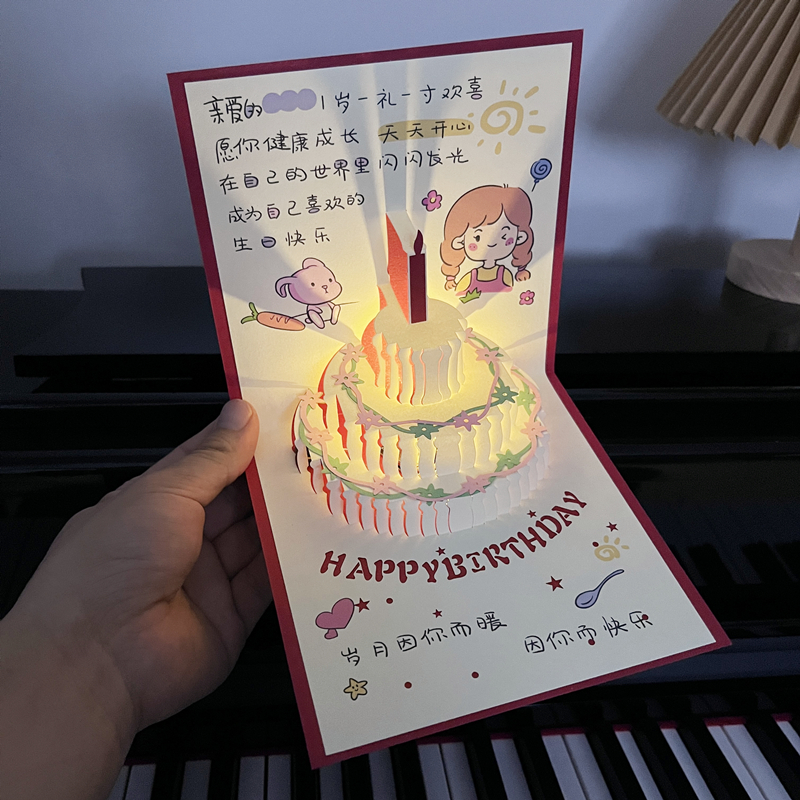 亲爱的 1岁一礼一寸欢喜
愿你健康成长 天天开心
在自己的世界里闪闪发光
成为自己喜欢的
生日快乐
HAPPYBIRTHDAY
岁月因你而暖 因你而快乐